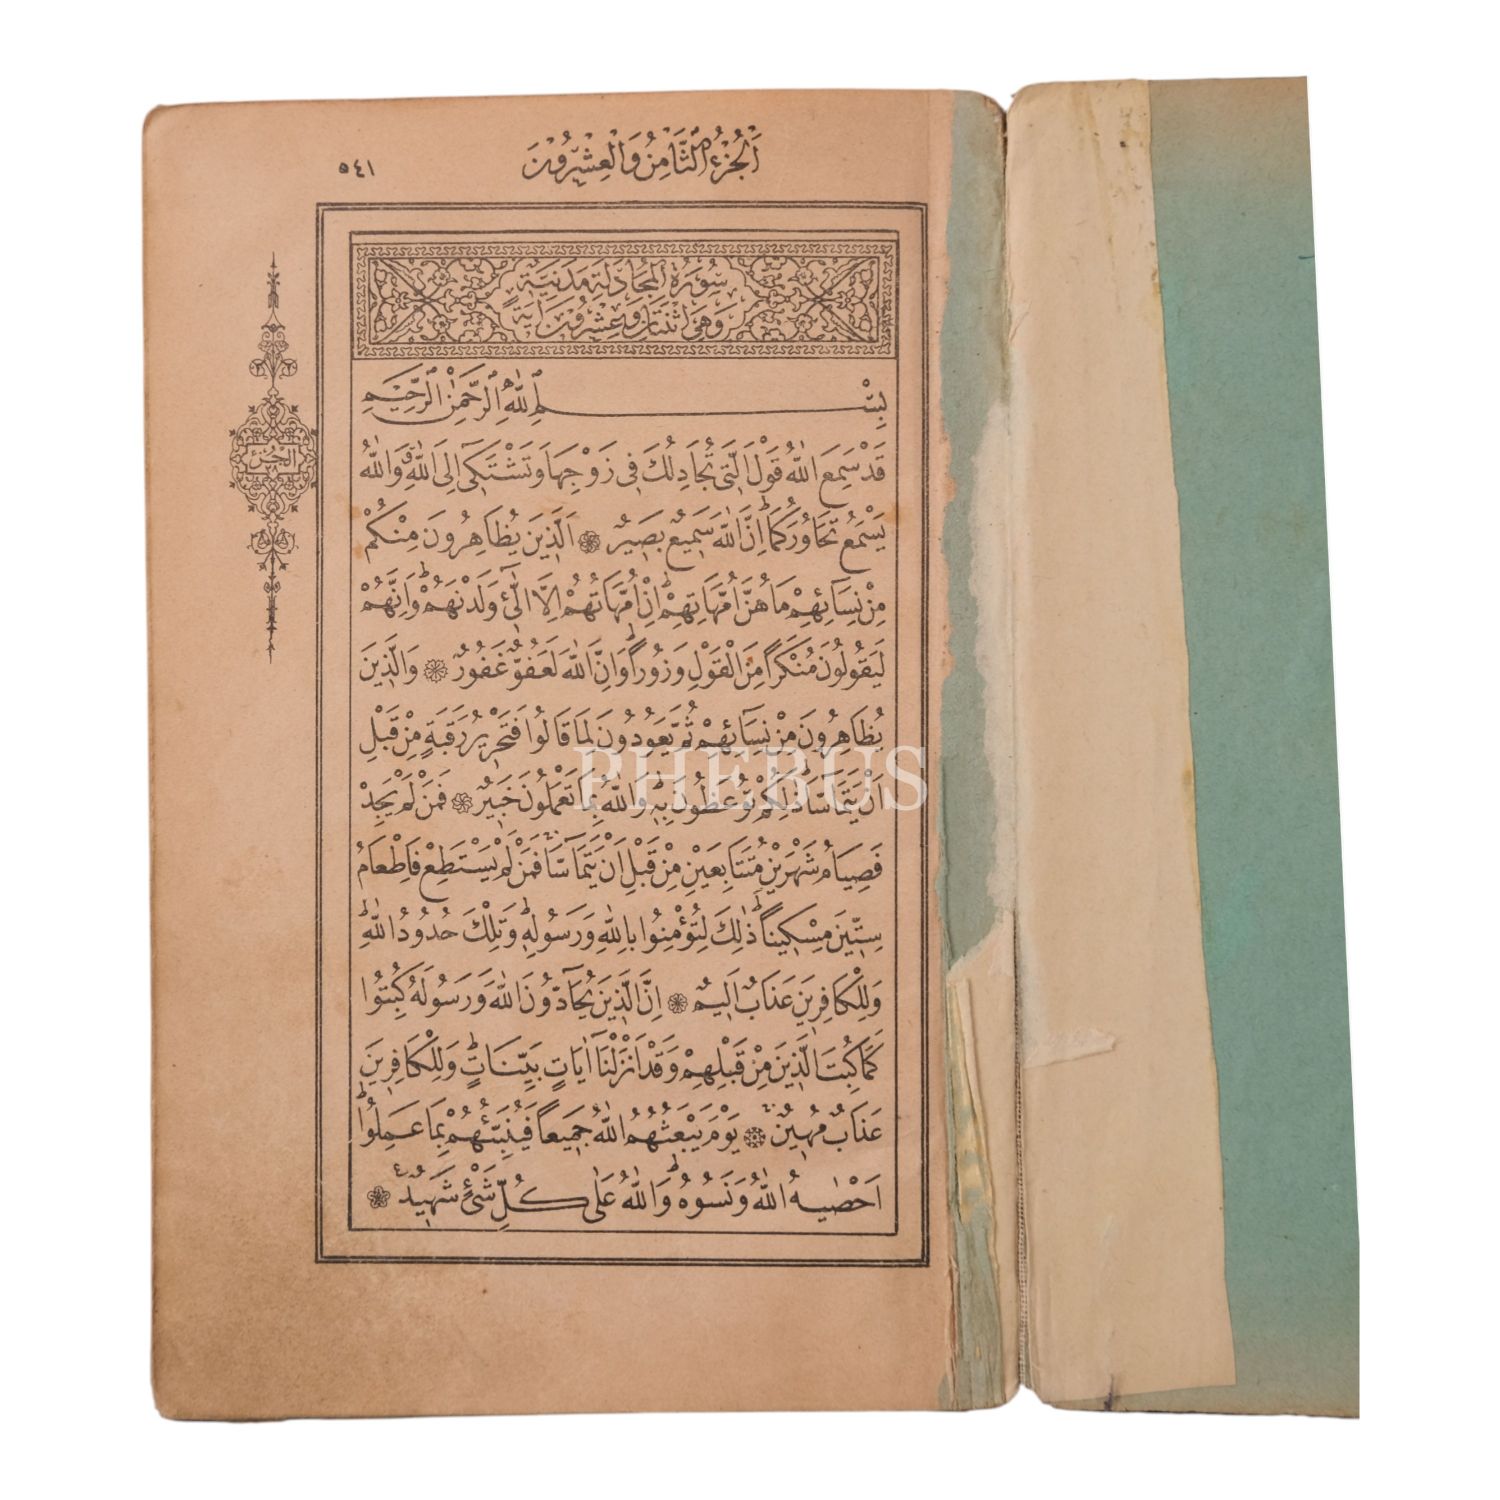 اَلْجُزْءُ الثَّامِنُ وَالْعِشْرُونَ
٥٤١
سُورَةُ الْمُجَادَلَةِ مَدَنِيَّةٌ
وَهِيَ اثْنَتَانِ وَعِشْرُونَ اٰيَةً
بِسْمِ اللّٰهِ الرَّحْمٰنِ الرَّحِيمِ
الجزء
٢٨
قَدْ سَمِعَ اللّٰهُ قَوْلَ الَّتِى تُجَادِلُكَ فِى زَوْجِهَا وَتَشْتَكِٓى اِلَى اللّٰهِۗ وَاللّٰهُ
يَسْمَعُ تَحَاوُرَكُمَاۜ اِنَّ اللّٰهَ سَمِيعٌ بَصِيرٌ ۞ اَلَّذِينَ يُظَاهِرُونَ مِنْكُمْ
مِنْ نِسَٓائِهِمْ مَا هُنَّ اُمَّهَاتِهِمْۜ اِنْ اُمَّهَاتُهُمْ اِلَّا الّٰٓئِ وَلَدْنَهُمْۜ وَاِنَّهُمْ
لَيَقُولُونَ مُنْكَرًا مِنَ الْقَوْلِ وَزُورًاۜ وَاِنَّ اللّٰهَ لَعَفُوٌّ غَفُورٌ ۞ وَالَّذِينَ
يُظَاهِرُونَ مِنْ نِسَٓائِهِمْ ثُمَّ يَعُودُونَ لِمَا قَالُوا فَتَحْرِيرُ رَقَبَةٍ مِنْ قَبْلِ
اَنْ يَتَمَٓاسَّاۜ ذٰلِكُمْ تُوعَظُونَ بِهِۜ وَاللّٰهُ بِمَا تَعْمَلُونَ خَبِيرٌ ۞ فَمَنْ لَمْ يَجِدْ
فَصِيَامُ شَهْرَيْنِ مُتَتَابِعَيْنِ مِنْ قَبْلِ اَنْ يَتَمَٓاسَّاۚ فَمَنْ لَمْ يَسْتَطِعْ فَاِطْعَامُ
سِتِّينَ مِسْكِينًاۜ ذٰلِكَ لِتُؤْمِنُوا بِاللّٰهِ وَرَسُولِهِۜ وَتِلْكَ حُدُودُ اللّٰهِۜ
وَلِلْكَافِرِينَ عَذَابٌ اَلِيمٌ ۞ اِنَّ الَّذِينَ يُحَٓادُّونَ اللّٰهَ وَرَسُولَهُ كُبِتُوا
كَمَا كُبِتَ الَّذِينَ مِنْ قَبْلِهِمْ وَقَدْ اَنْزَلْنَٓا اٰيَاتٍ بَيِّنَاتٍۜ وَلِلْكَافِرِينَ
عَذَابٌ مُهِينٌۚ ۞ يَوْمَ يَبْعَثُهُمُ اللّٰهُ جَمِيعًا فَيُنَبِّئُهُمْ بِمَا عَمِلُواۜ
اَحْصٰيهُ اللّٰهُ وَنَسُوهُۜ وَاللّٰهُ عَلٰى كُلِّ شَىْءٍ شَهِيدٌ ۞
PHEBUS